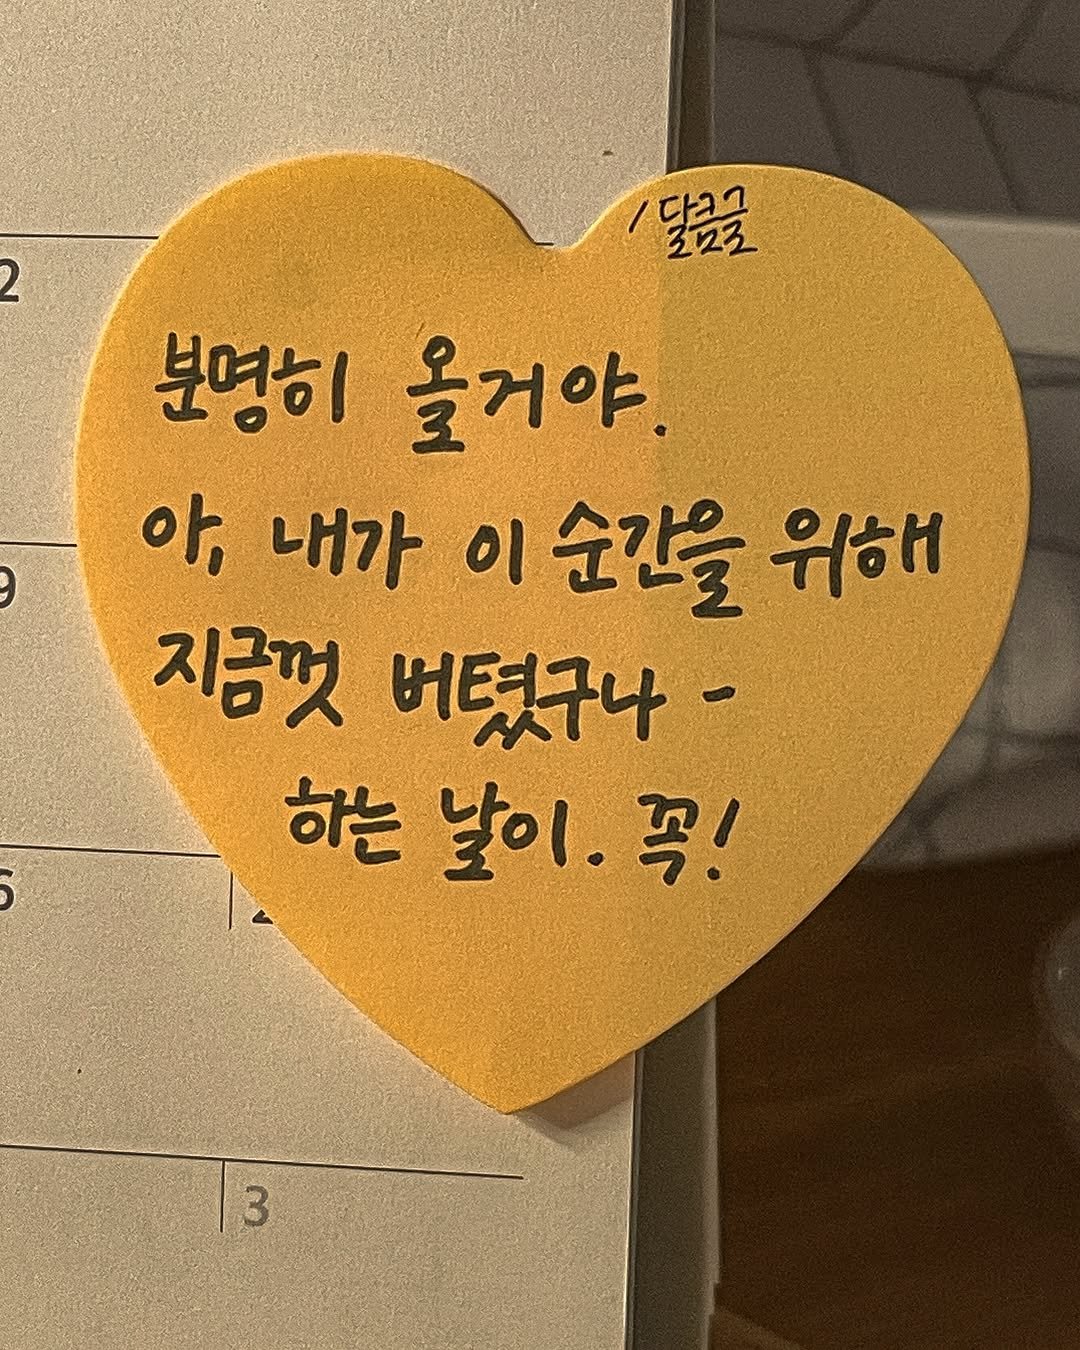 / 달콤글
분명히 올거야.
아, 내가 이 순간을 위해
지금껏 버텼구나 -
하는 날이. 꼭!
2
9
6
3